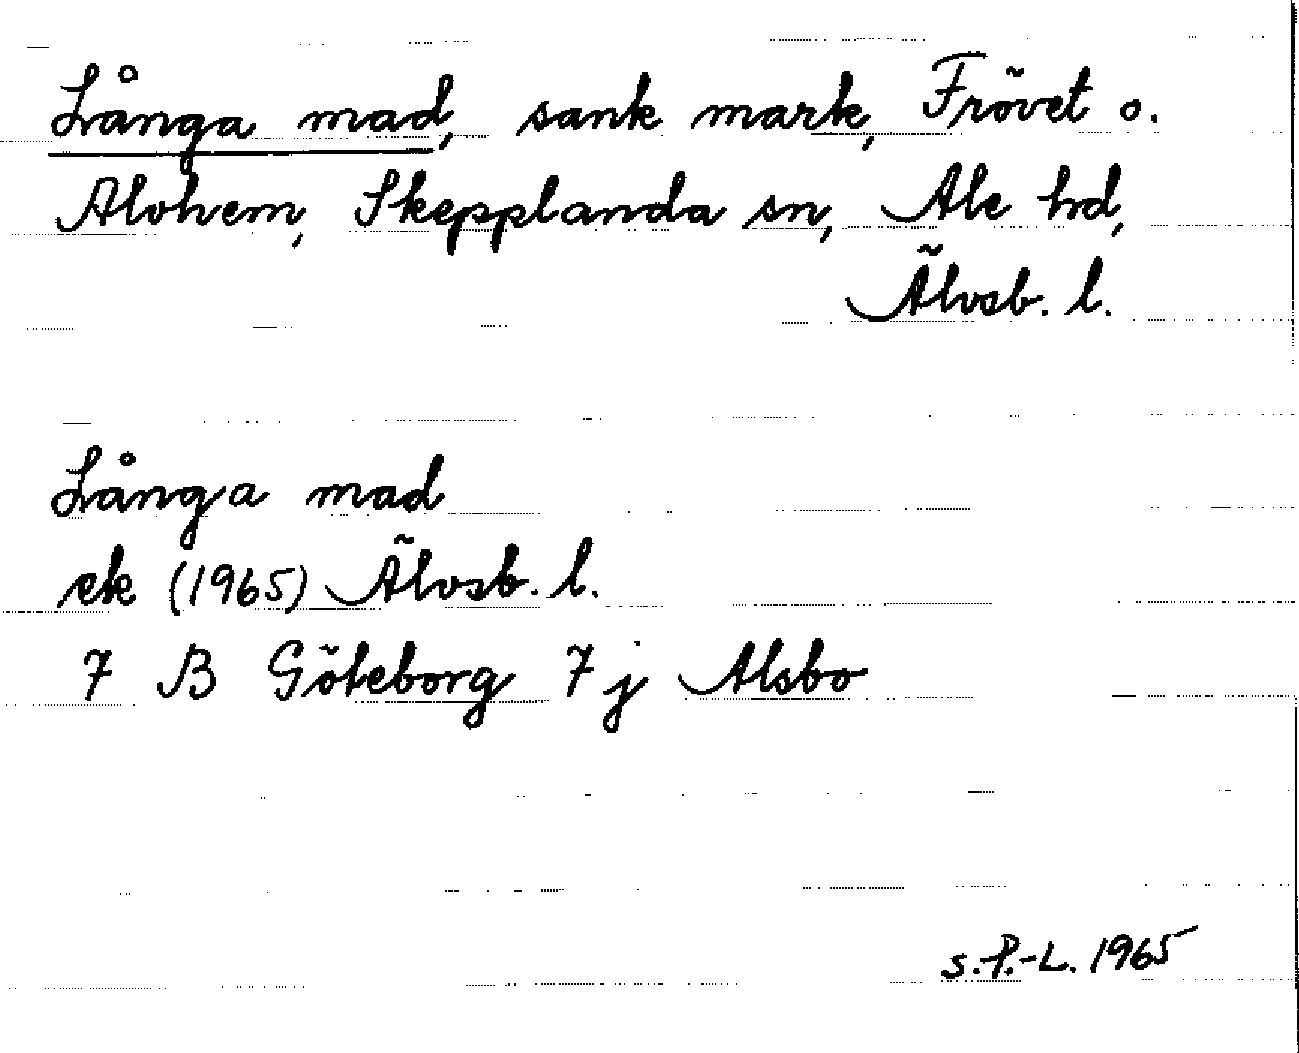 Långa mad, sank mark, Frövet o.
Alvhem, Skepplanda sn, Ale hd,
Älvsb. l.
Långa mad
ek (1965) Älvsb. l.
7 B Göteborg 7 j Alsbo
S.P.-L. 1965